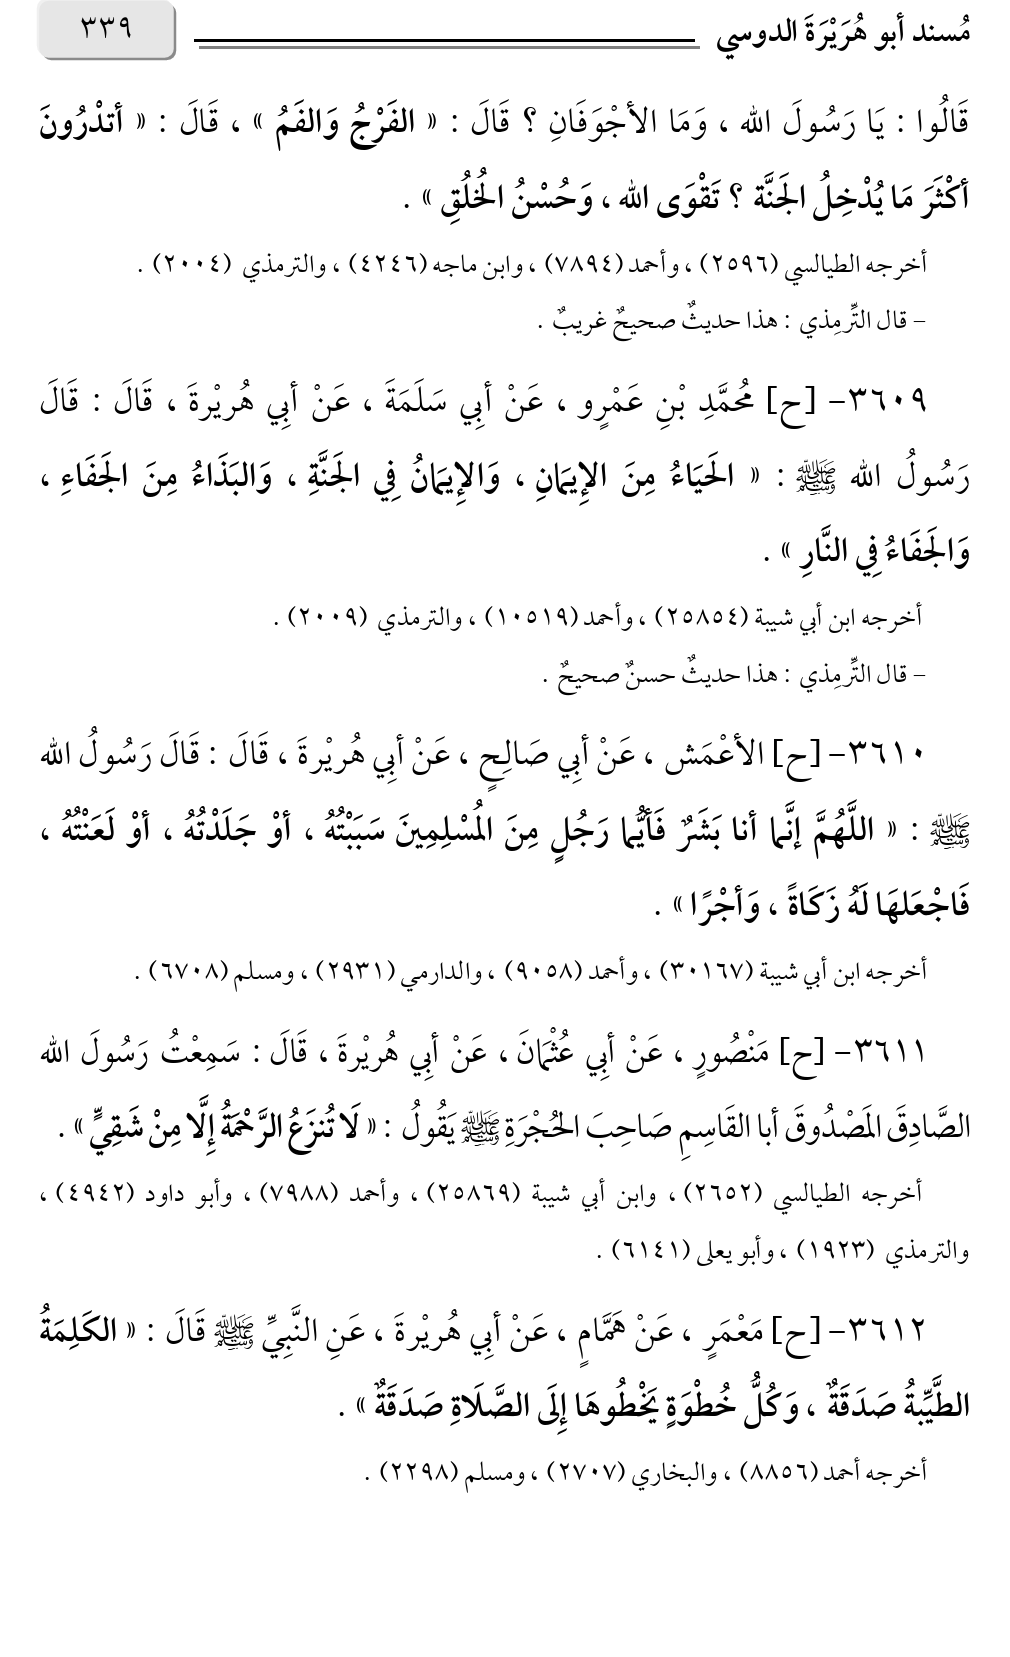 مُسند أبو هُرَيْرَةَ الدوسي ٣٣٩
قَالُوا : يَا رَسُولَ الله ، وَمَا الأجْوَفَانِ ؟ قَالَ : « الفَرْجُ وَالفَمُ » ، قَالَ : « أتدْرُونَ
أكْثَرَ مَا يُدْخِلُ الجَنَّة ؟ تَقْوَى الله ، وَحُسْنُ الخُلُقِ » .
أخرجه الطيالسي (٢٥٩٦) ، وأحمد (٧٨٩٤) ، وابن ماجه (٤٢٤٦) ، والترمذي (٢٠٠٤) .
– قال التِّرمِذي : هذا حديثٌ صحيحٌ غريبٌ .
٣٦٠٩– [ح] مُحمَّدِ بْنِ عَمْرٍو ، عَنْ أبي سَلَمَةَ ، عَنْ أبِي هُريْرةَ ، قَالَ : قَالَ
رَسُولُ الله ﷺ : « الحَيَاءُ مِنَ الإِيمَانِ ، وَالإِيمَانُ فِي الجَنَّةِ ، وَالبَذَاءُ مِنَ الجَفَاءِ ،
وَالجَفَاءُ فِي النَّارِ » .
أخرجه ابن أبي شيبة (٢٥٨٥٤) ، وأحمد (١٠٥١٩) ، والترمذي (٢٠٠٩) .
– قال التِّرمِذي : هذا حديثٌ حسنٌ صحيحٌ .
٣٦١٠– [ح] الأعْمَش ، عَنْ أبِي صَالِحٍ ، عَنْ أبِي هُريْرةَ ، قَالَ : قَالَ رَسُولُ الله
ﷺ : « اللَّهُمَّ إنَّما أنا بَشَرٌ فَأيُّما رَجُلٍ مِنَ المُسْلِمِينَ سَبَبْتُهُ ، أوْ جَلَدْتُهُ ، أوْ لَعَنْتُهُ ،
فَاجْعَلهَا لَهُ زَكَاةً ، وَأجْرًا » .
أخرجه ابن أبي شيبة (٣٠١٦٧) ، وأحمد (٩٠٥٨) ، والدارمي (٢٩٣١) ، ومسلم (٦٧٠٨) .
٣٦١١– [ح] مَنْصُورٍ ، عَنْ أبِي عُثْمَانَ ، عَنْ أبِي هُريْرةَ ، قَالَ : سَمِعْتُ رَسُولَ الله
الصَّادِقَ المَصْدُوقَ أبا القَاسِمِ صَاحِبَ الحُجْرَةِ ﷺ يَقُولُ : « لَا تُنزَعُ الرَّحْمَةُ إِلَّا مِنْ شَقِيٍّ » .
أخرجه الطيالسي (٢٦٥٢) ، وابن أبي شيبة (٢٥٨٦٩) ، وأحمد (٧٩٨٨) ، وأبو داود (٤٩٤٢) ،
والترمذي (١٩٢٣) ، وأبو يعلى (٦١٤١) .
٣٦١٢– [ح] مَعْمَرٍ ، عَنْ هَمَّامٍ ، عَنْ أبي هُريْرةَ ، عَنِ النَّبِيِّ ﷺ قَالَ : « الكَلِمَةُ
الطَّيِّبةُ صَدَقَةٌ ، وَكُلُّ خُطْوَةٍ يَخْطُوهَا إِلَى الصَّلَاةِ صَدَقَةٌ » .
أخرجه أحمد (٨٨٥٦) ، والبخاري (٢٧٠٧) ، ومسلم (٢٢٩٨) .